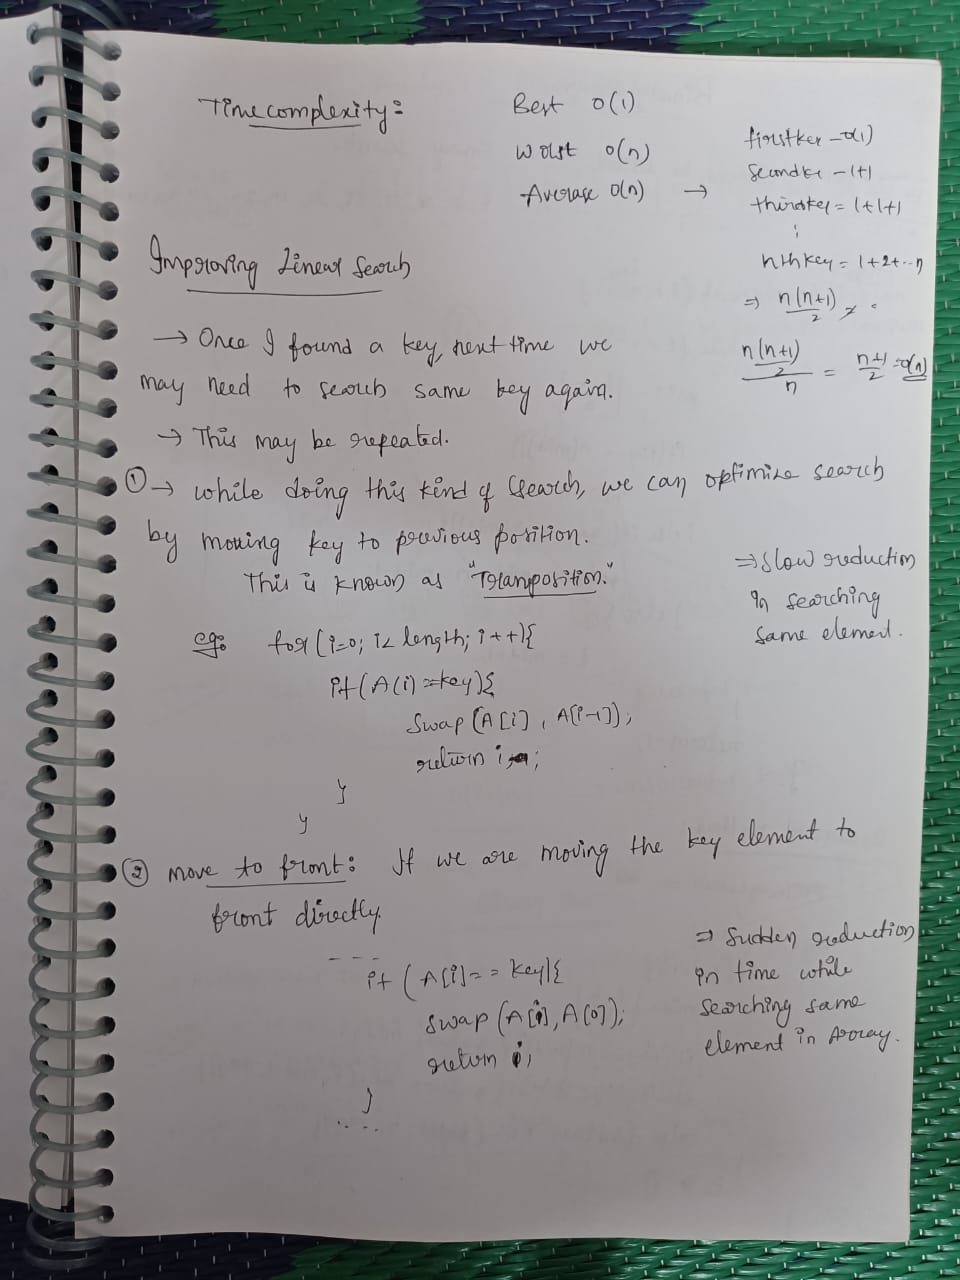 Time complexity:
Best O(1)
Worst O(n)
Average O(n) →
firstkey - O(1)
Secondke - 1+1
thirdkey = 1+1+1
⋮
nth key = 1+2+...n
⇒ n(n+1)/2
(n(n+1)/2)/n = n+1/2 = O(n)
Improving Linear Search
→ Once I found a key, next time we
may need to search same key again.
→ This may be repeated.
① → while doing this kind of search, we can optimize search
by moving key to previous position.
This is known as "Transposition."
⇒ Slow reduction
in searching
same element.
eg: for(i=0; i< length; i++){
if(A(i)==key){
Swap(A[i], A[i-1]);
return i;
}
}
② move to front: If we are moving the key element to
front directly.
- - -
if (A[i]== key){
swap(A[i], A[0]);
return i;
}
.. ..
⇒ Sudden reduction
in time while
searching same
element in Array.